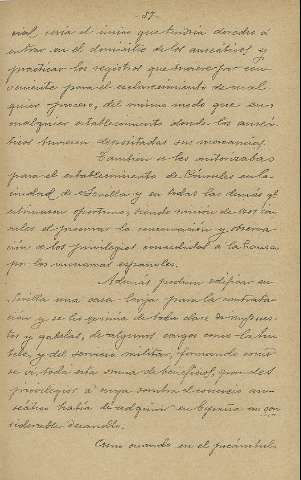 - 87 -
nial, sería el único que tendría derecho á
entrar en el domicilio de los anseáticos y
practicar los registros que tuviese por con
veniente para el esclarecimiento de cual
quier fraude, del mismo modo que en
cualquier establecimiento donde los anseá
ticos tuviesen depositadas sus mercancías.
También se les autorizaba
para el establecimiento de Cónsules en la
ciudad de Sevilla y en todas las demás qe
estimasen oportuno, siendo misión de los cón
sules el procurar la conservación y observa
ción de los privilegios concedidos á la Hansa
por los monarcas españoles.
Además podían edificar en
Sevilla una casa lonja para la contrata
ción y se les eximía de toda clase de impues
tos y gabelas, de algunos cargos como la tu
tela, y del servicio militar, formando como
se ve, toda esta suma de beneficios, que des
privilegios á cuya sombra el comercio an
seático había de adquirir en España un con
siderable desarrollo.
Como cuando en el preámbulo